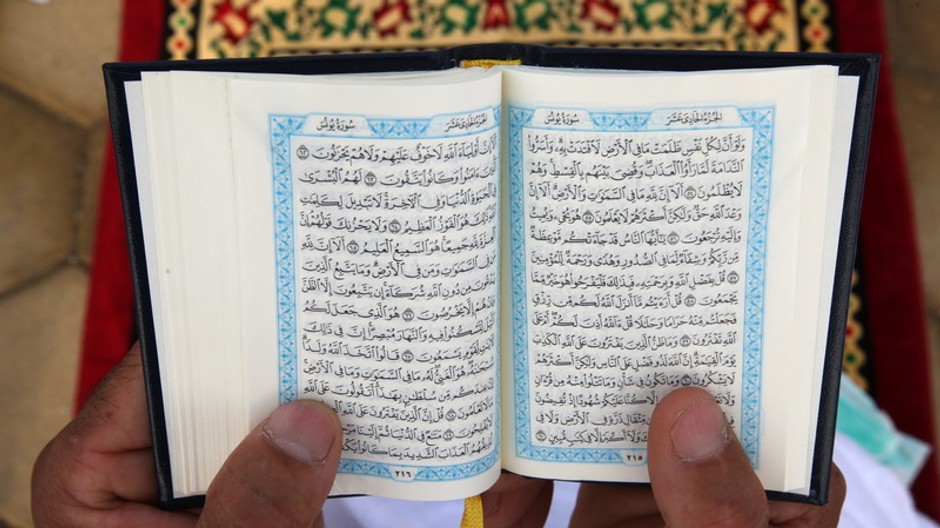 الجزء الحادي عشر
سورة يونس
وَلَوْ أَنَّ لِكُلِّ نَفْسٍ ظَلَمَتْ مَا فِي الْأَرْضِ لَافْتَدَتْ بِهِ وَأَسَرُّوا
النَّدَامَةَ لَمَّا رَأَوُا الْعَذَابَ وَقُضِيَ بَيْنَهُم بِالْقِسْطِ وَهُمْ
لَا يُظْلَمُونَ ٥٤ أَلَا إِنَّ لِلَّهِ مَا فِي السَّمَٰوَٰتِ وَالْأَرْضِ أَلَا إِنَّ
وَعْدَ اللَّهِ حَقٌّ وَلَٰكِنَّ أَكْثَرَهُمْ لَا يَعْلَمُونَ ٥٥ هُوَ يُحْيِ وَيُمِيتُ
وَإِلَيْهِ تُرْجَعُونَ ٥٦ يَٰأَيُّهَا النَّاسُ قَدْ جَاءَتْكُم مَّوْعِظَةٌ
مِّن رَّبِّكُمْ وَشِفَاءٌ لِّمَا فِي الصُّدُورِ وَهُدًى وَرَحْمَةٌ لِّلْمُؤْمِنِينَ
٥٧ قُلْ بِفَضْلِ اللَّهِ وَبِرَحْمَتِهِ فَبِذَٰلِكَ فَلْيَفْرَحُوا هُوَ خَيْرٌ مِّمَّا
يَجْمَعُونَ ٥٨ قُلْ أَرَءَيْتُم مَّا أَنزَلَ اللَّهُ لَكُم مِّن رِّزْقٍ
فَجَعَلْتُم مِّنْهُ حَرَامًا وَحَلَٰلًا قُلْ ءَاللَّهُ أَذِنَ لَكُمْ أَمْ عَلَى
اللَّهِ تَفْتَرُونَ ٥٩ وَمَا ظَنُّ الَّذِينَ يَفْتَرُونَ عَلَى اللَّهِ الْكَذِبَ
يَوْمَ الْقِيَٰمَةِ إِنَّ اللَّهَ لَذُو فَضْلٍ عَلَى النَّاسِ وَلَٰكِنَّ أَكْثَرَهُمْ
لَا يَشْكُرُونَ ٦٠ وَمَا تَكُونُ فِي شَأْنٍ وَمَا تَتْلُوا مِنْهُ مِن قُرْءَانٍ
إِلَّا كُنَّا عَلَيْكُمْ شُهُودًا إِذْ تُفِيضُونَ
مِثْقَالِ ذَرَّةٍ فِي الْأَرْضِ وَلَا فِي
وَلَا أَكْبَرَ إِلَّا فِي كِتَٰبٍ مُّبِينٍ ٦١
٢١٥
الجزء الحادي عشر
سورة يونس
أَلَا إِنَّ أَوْلِيَاءَ اللَّهِ لَا خَوْفٌ عَلَيْهِمْ وَلَا هُمْ يَحْزَنُونَ ٦٢
ءَامَنُوا وَكَانُوا يَتَّقُونَ ٦٣ لَهُمُ الْبُشْرَىٰ
فِي الْحَيَوٰةِ الدُّنْيَا وَفِي الْأَخِرَةِ لَا تَبْدِيلَ لِكَلِمَٰتِ
ذَٰلِكَ هُوَ الْفَوْزُ الْعَظِيمُ ٦٤ وَلَا يَحْزُنكَ قَوْلُهُمْ إِنَّ
الْعِزَّةَ لِلَّهِ جَمِيعًا هُوَ السَّمِيعُ الْعَلِيمُ ٦٥ أَلَا إِنَّ لِلَّهِ
مَن فِي السَّمَٰوَٰتِ وَمَن فِي الْأَرْضِ وَمَا يَتَّبِعُ الَّذِينَ
يَدْعُونَ مِن دُونِ اللَّهِ شُرَكَاءَ إِن يَتَّبِعُونَ إِلَّا الظَّنَّ
وَإِنْ هُمْ إِلَّا يَخْرُصُونَ ٦٦ هُوَ الَّذِي جَعَلَ لَكُمُ
الَّيْلَ لِتَسْكُنُوا فِيهِ وَالنَّهَارَ مُبْصِرًا إِنَّ فِي ذَٰلِكَ
لَأَيَٰتٍ لِّقَوْمٍ يَسْمَعُونَ ٦٧ قَالُوا اتَّخَذَ اللَّهُ وَلَدًا
سُبْحَٰنَهُ هُوَ الْغَنِيُّ لَهُ مَا فِي السَّمَٰوَٰتِ وَمَا فِي الْأَرْضِ
إِنْ عِندَكُم مِّن سُلْطَٰنٍ بِهَٰذَا أَتَقُولُونَ عَلَى اللَّهِ
مَا لَا تَعْلَمُونَ ٦٨ قُلْ إِنَّ الَّذِينَ يَفْتَرُونَ عَلَى اللَّهِ
لَا يُفْلِحُونَ ٦٩ مَتَٰعٌ فِي الدُّنْيَا ثُمَّ إِلَيْنَا
نُذِيقُهُمُ الْعَذَابَ الشَّدِيدَ بِمَا كَانُوا
٢١٦